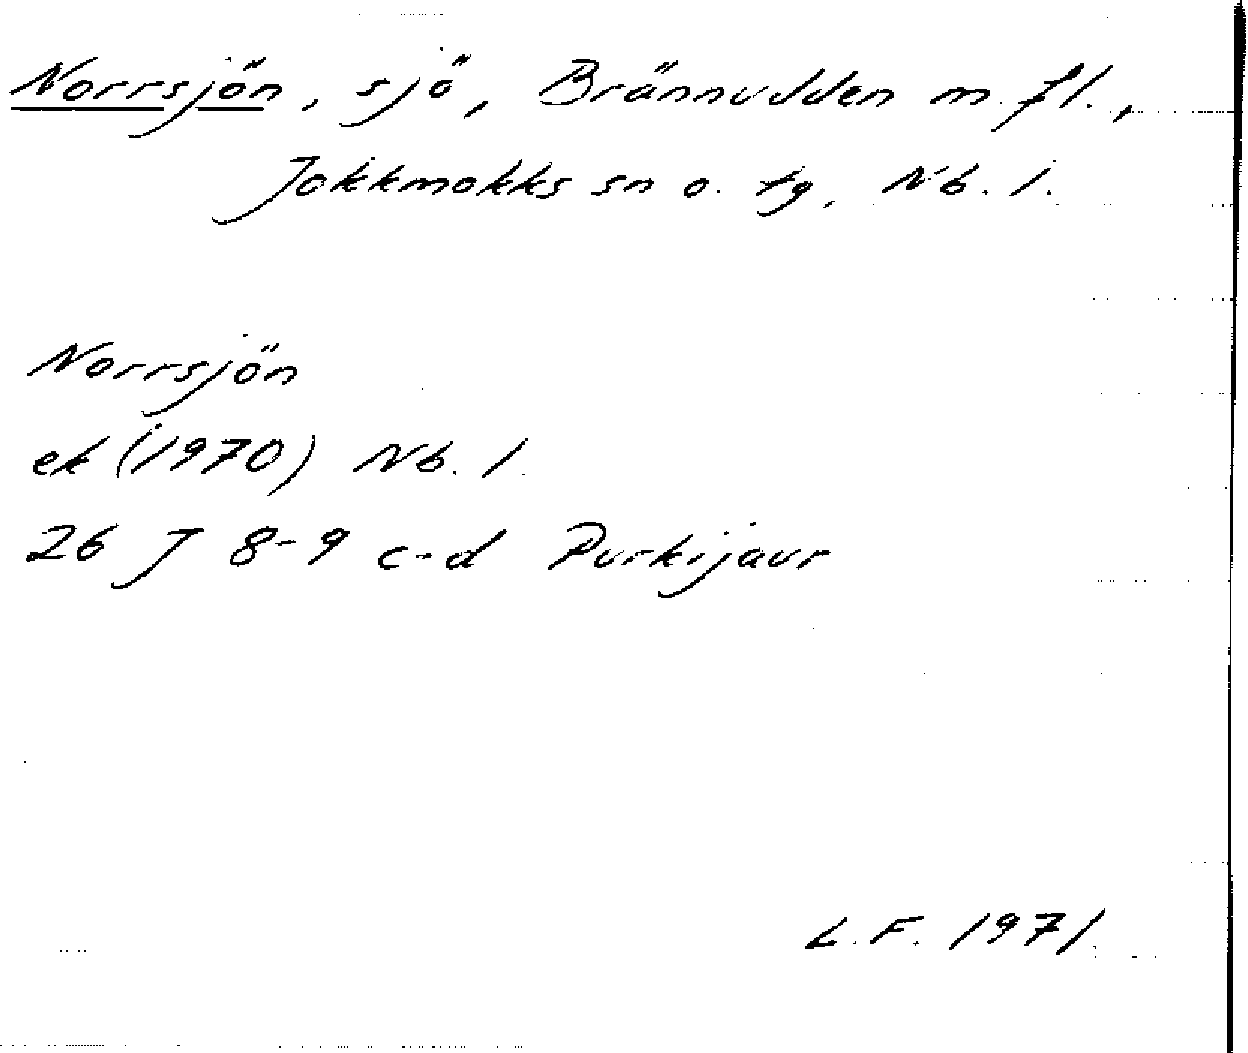 Norrsjön, sjö, Brännudden m. fl.,
Jokkmokks sn o. tg, Nb. l.
Norrsjön
ek (1970) Nb. l.
26 J 8-9 c-d Purkijaur
L. F. 1971.